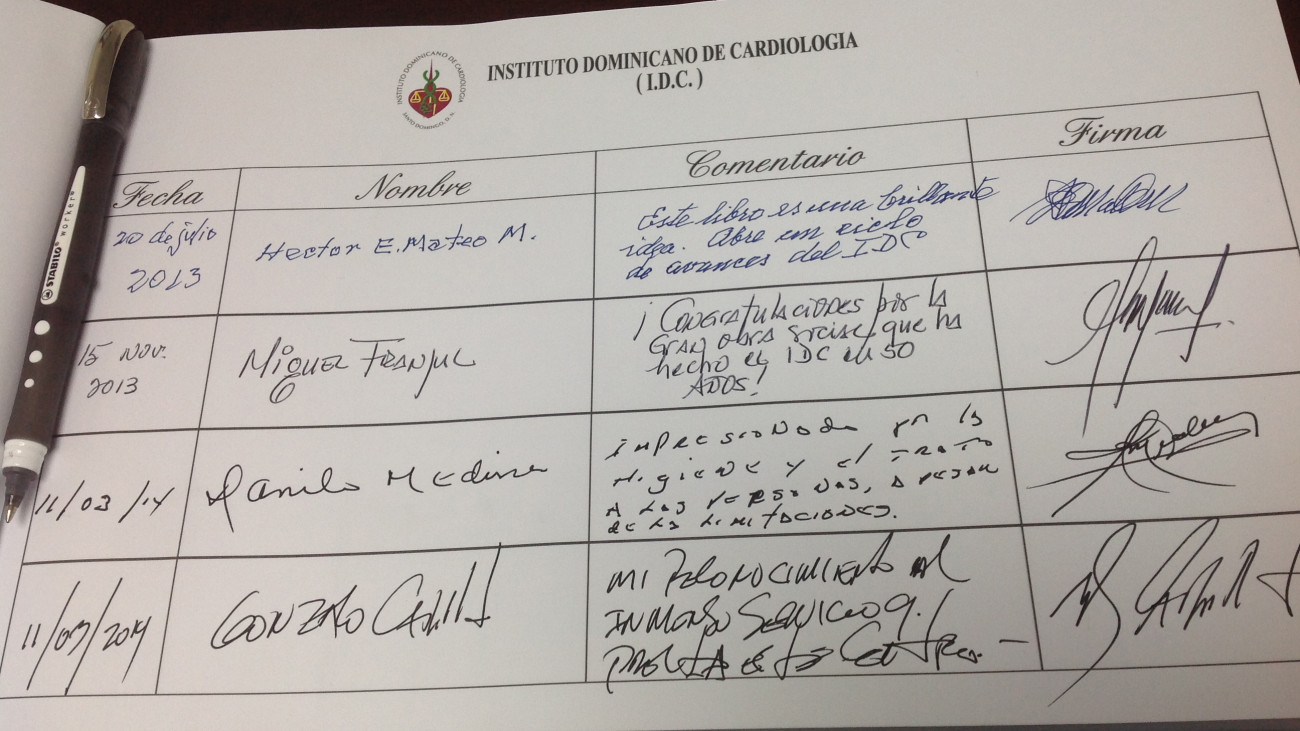 INSTITUTO DOMINICANO DE CARDIOLOGIA
( I.D.C. )
INSTITUTO DOMINICANO DE CARDIOLOGIA
SANTO DOMINGO, D. N.
STABILO worker
Fecha Nombre Comentario Firma
20 de julio
2013
Hector E. Mateo M.
Este libro es una brillante
idea. Abre un ciclo
de avances del IDC
15 Nov.
2013
Miguel Franjul
¡Congratulaciones por la
gran obra social que ha
hecho el IDC en 50
años!
11/03/14
Danilo Medina
impresionado por la
Higiene y el trato
a las personas, a pesar
de las limitaciones.
11/03/2014
Gonzalo Castillo
Mi reconocimiento al
inmenso servicio q.
presta este Centro.